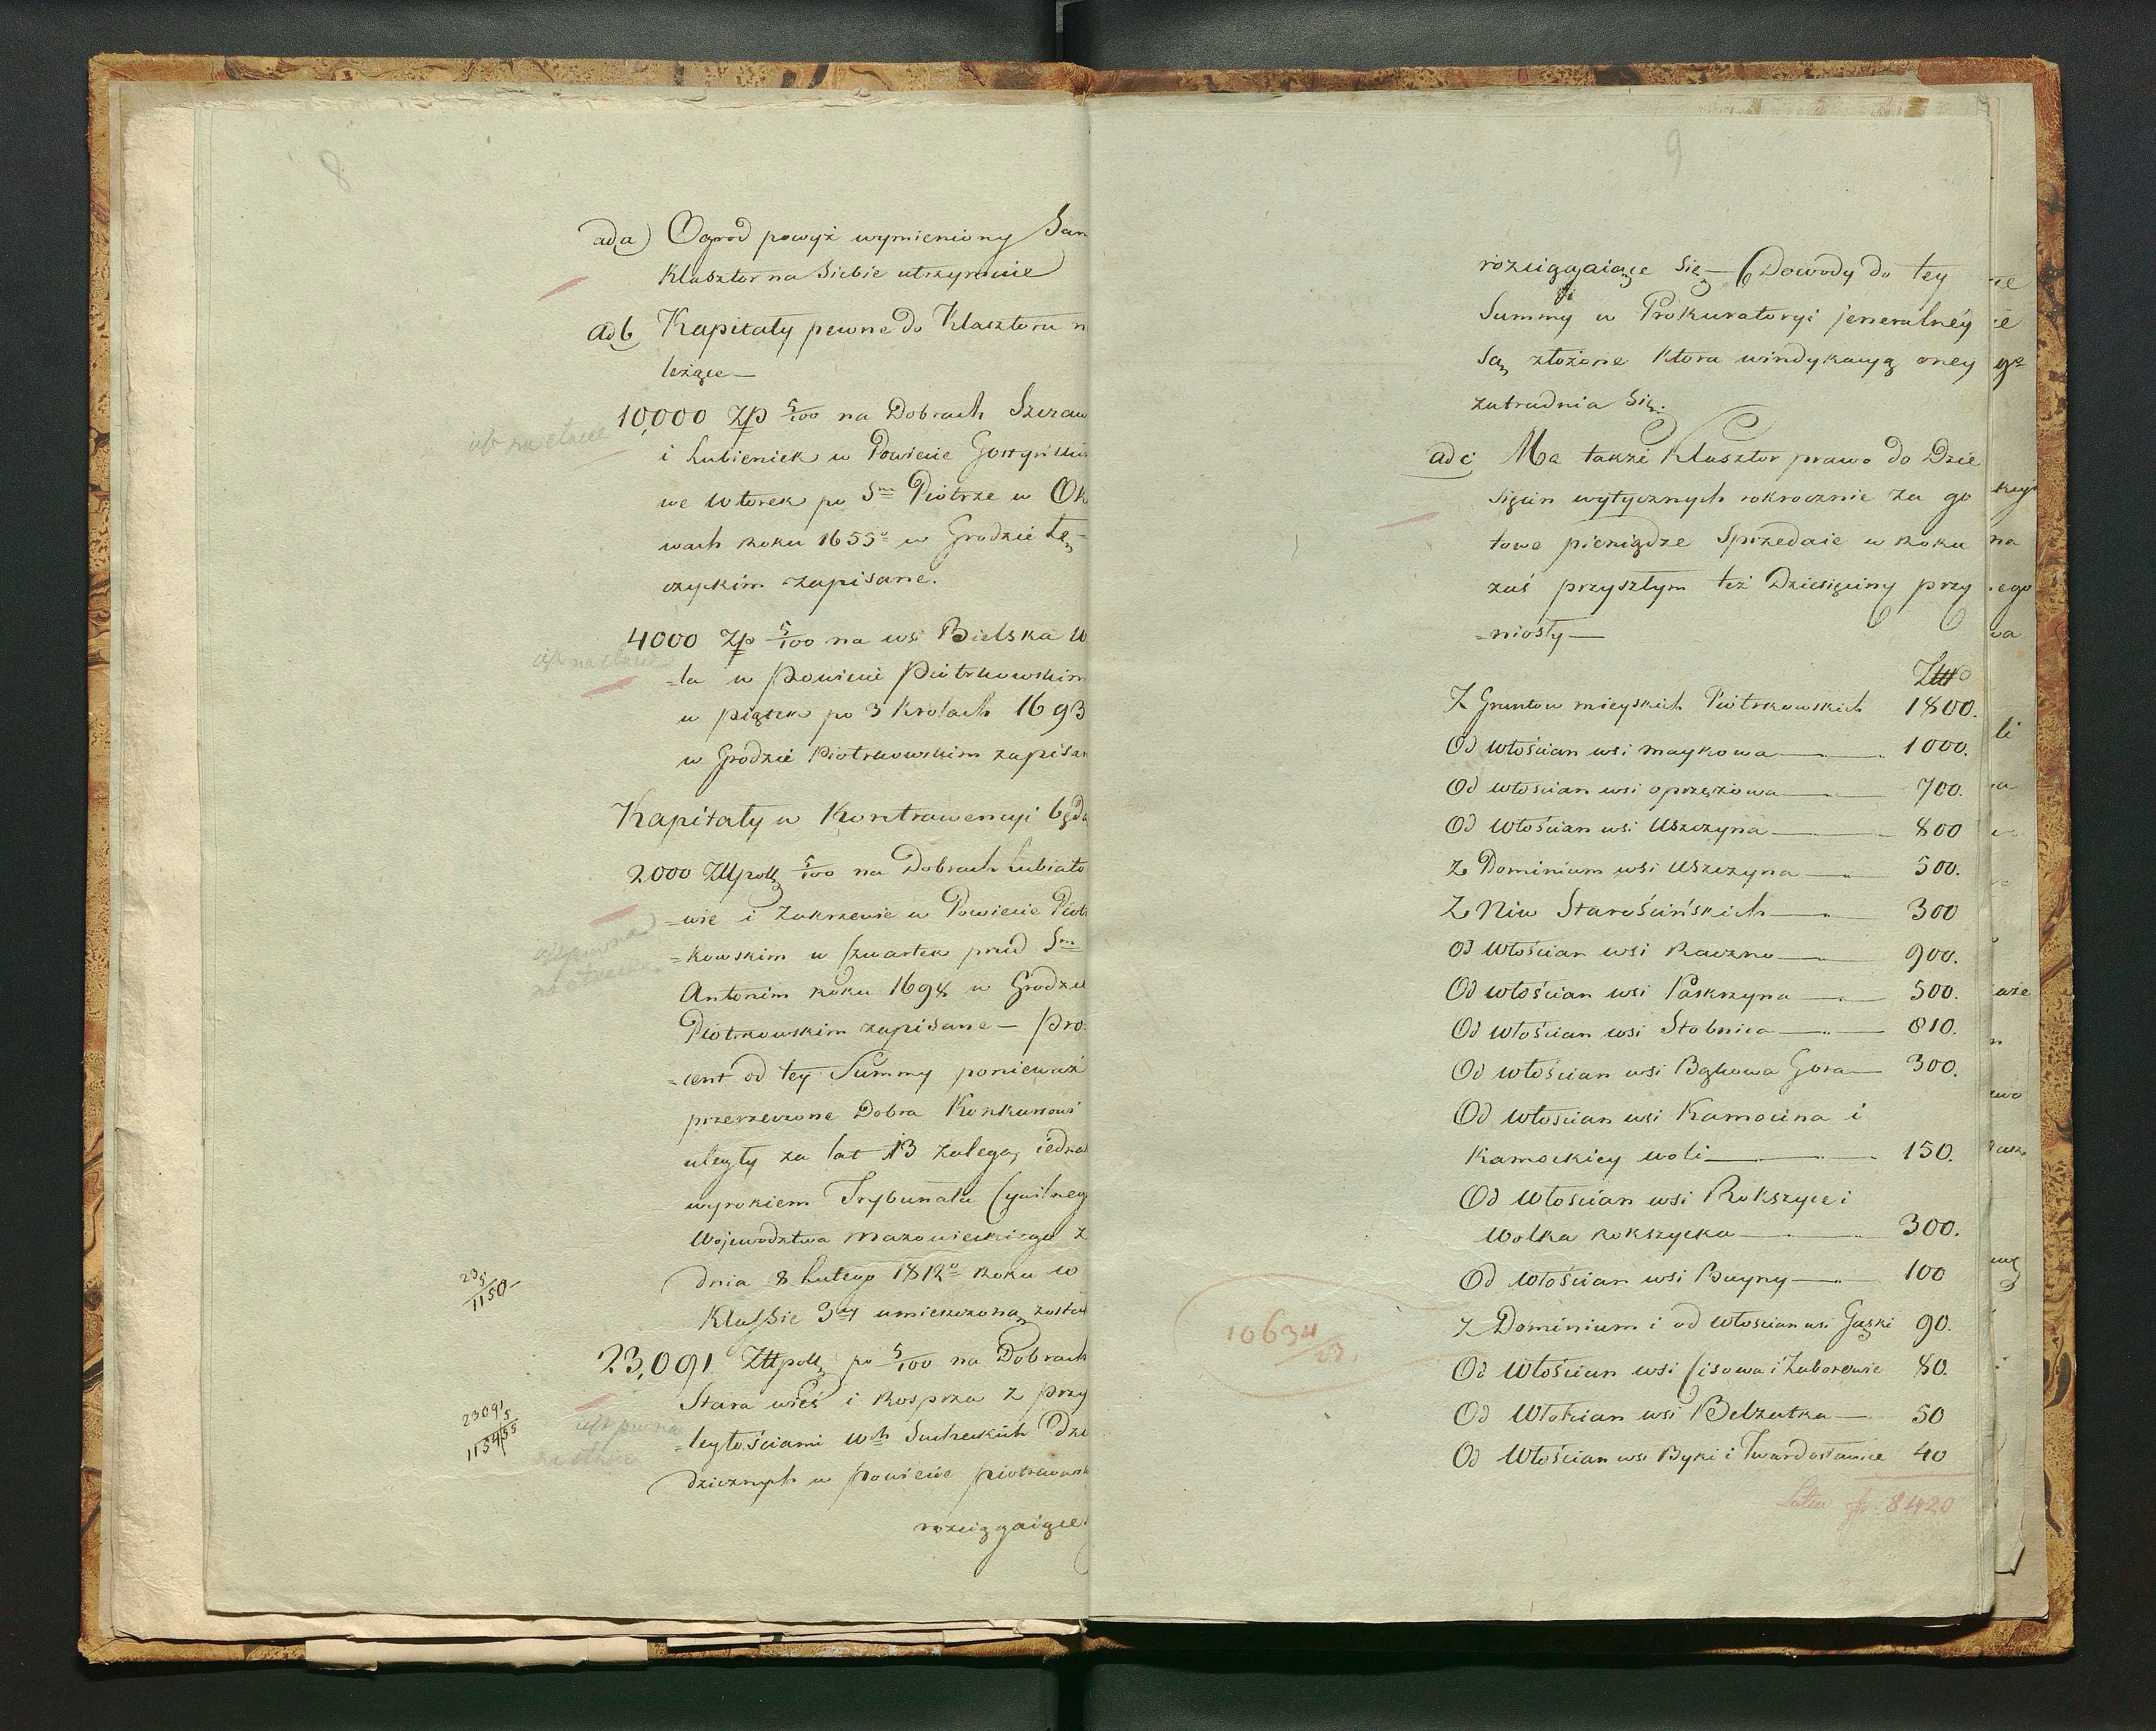 8
ad a) Ogrod powyż wymieniony Sam
Klasztor na Siebie utrzymuie
ad b Kapitały pewne do Klasztoru n
leżące —
10,000 Zp 5/100 na Dobrach Szczaw
i Lubieniek w Powiecie Gostyńskim
we Wtorek po Sm Piotrze w Ok
wach Roku 1655o w Grodzie Łę=
czyckim zapisane.
4000 Zp 5/100 na wsi Bielska W
=la w Powiecie Piotrkowskim
w piątek po 3 Krolach 1693
w Grodzie Piotrkowskim zapisan
Kapitały w Kontrawencyi będą
2000 Złłpoll 5/100 na Dobrach Lubiato
=wie i Zakrzewie w Powiecie Piotr
=kowskim w Czwartek przed Sm
Antonim Roku 1698 w Grodzie
Piotrkowskim zapisane — pro=
=cent od tey Summy ponieważ
przerzeczone Dobra Konkursowi
uległy za lat 13 zalega, iedna
wyrokiem Trybunału Cywilneg
Woiewodztwa Mazowieckiego z
dnia 8 Lutego 1812o Roku w
235
1150
Klassie 3ey umieszczoną został
23,091 Złłpoll po 5/100 na Dobrach
Stara wieś i Rosprza z przy
23091
5
1154/55
=ległościami Wch Sucheckich Dzie
dzicznych w Powiecie Piotrkowsk
rozciągaiące
9
rozciągaiące się — Dowody do tey
Summy w Prokuratoryi jeneralnéy
Są złożone Ktora windykacyą oney
zatrudnia Się.
ad c Ma także Klasztor prawo do Dzie
sięcin wytycznych rokrocznie za go
towe pieniądze Sprzedaie w Roku
zaś przyszłym też Dziesięciny przy
=niosły —
Złł
Z Gruntow mieyskich Piotrkowskich 1800.
Od włościan wsi maykowa — 1000.
Od włościan wsi oprzężowa — 700.
Od Włościan wsi Uszczyna — 800
Z Dominium wsi Uszczyna — 500.
Z Niw Starościńskich — 300
Od Włościan wsi Raczna — 900.
Od włościan wsi Paskrzyna — 500.
Od włościan wsi Stobnica — 810.
Od włościan wsi Bąkowa Gora — 300.
Od włościan wsi Kamocina i
Kamockiey woli — 150.
Od Włościan wsi Rokszyce i
Wolka Rokszycka — 300.
Od włościan wsi Buyny — 100
10634/23.
Z Dominium i od Włościan wsi Gąski 90.
Od Włościan wsi Cisowa i Laborowie 80.
Od Włościan wsi Belzatka — 50
Od Włościan wsi Byki i Twardosławice 40
Latus fl. 8420